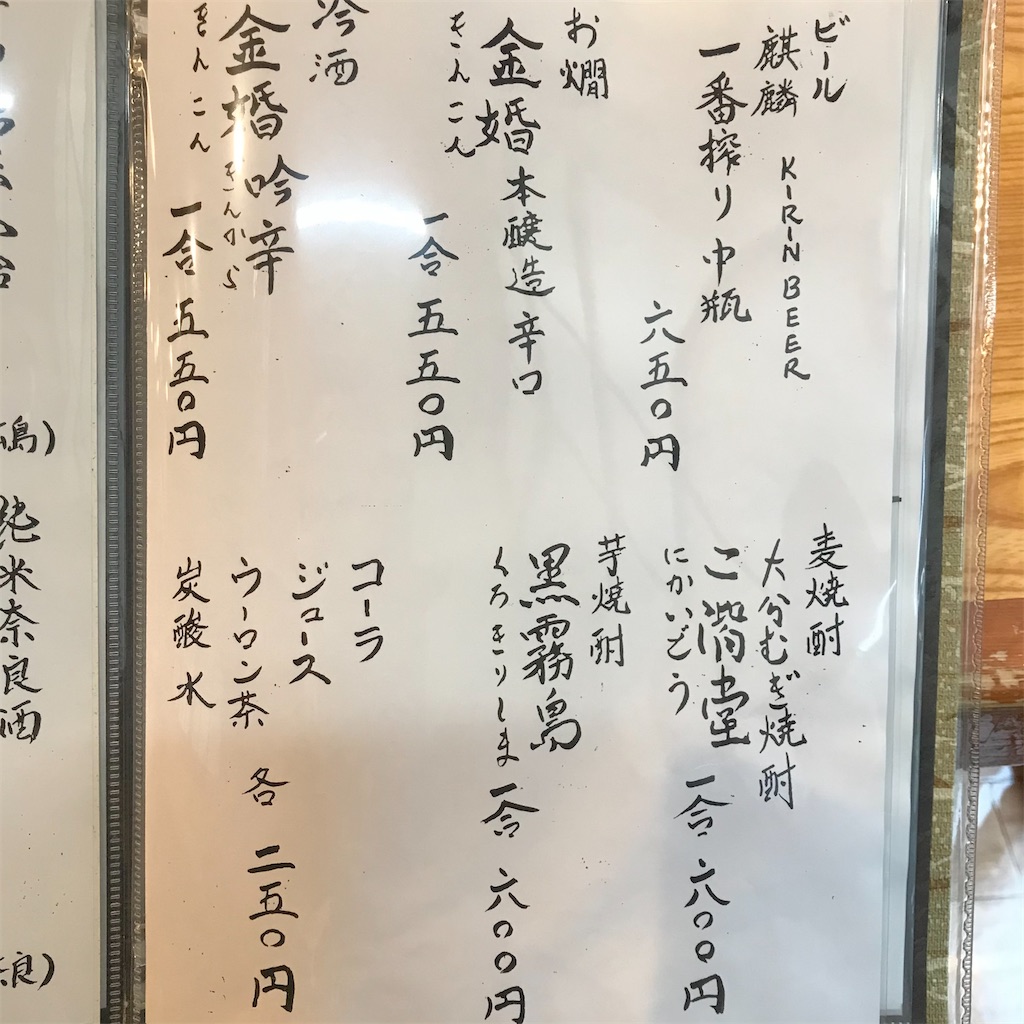 ビール
麒麟 KIRIN BEER
一番搾り中瓶
六五〇円
お燗
金婚 本醸造 辛口
きんこん
一合 五五〇円
冷酒
金婚 吟辛
きんこん ぎんから
一合 五五〇円
麦焼酎
大分むぎ焼酎
二階堂
にかいどう
一合 六〇〇円
芋焼酎
黒霧島
くろきりしま
一合 六〇〇円
コーラ
ジュース
ウーロン茶
炭酸水
各 二五〇円
島)
純米奈良酒
良)